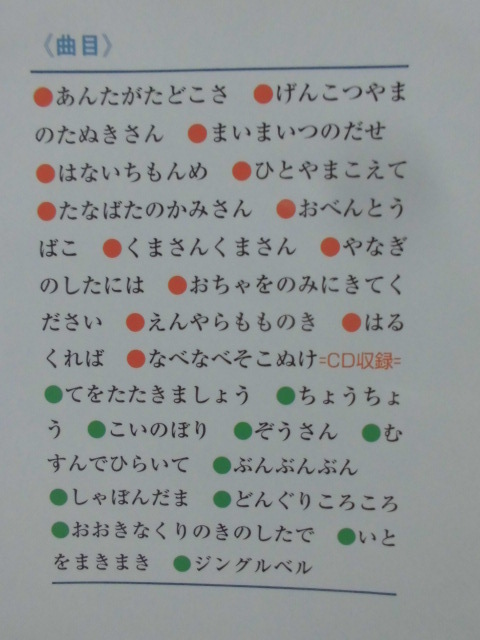 《曲目》
●あんたがたどこさ ●げんこつやま
のたぬきさん ●まいまいつのだせ
●はないちもんめ ●ひとやまこえて
●たなばたのかみさん ●おべんとう
ばこ ●くまさんくまさん ●やなぎ
のしたには ●おちゃをのみにきてく
ださい ●えんやらもものき ●はる
くれば ●なべなべそこぬけ=CD収録=
●てをたたきましょう ●ちょうちょ
う ●こいのぼり ●ぞうさん ●む
すんでひらいて ●ぶんぶんぶん
●しゃぼんだま ●どんぐりころころ
●おおきなくりのきのしたで ●いと
をまきまき ●ジングルベル